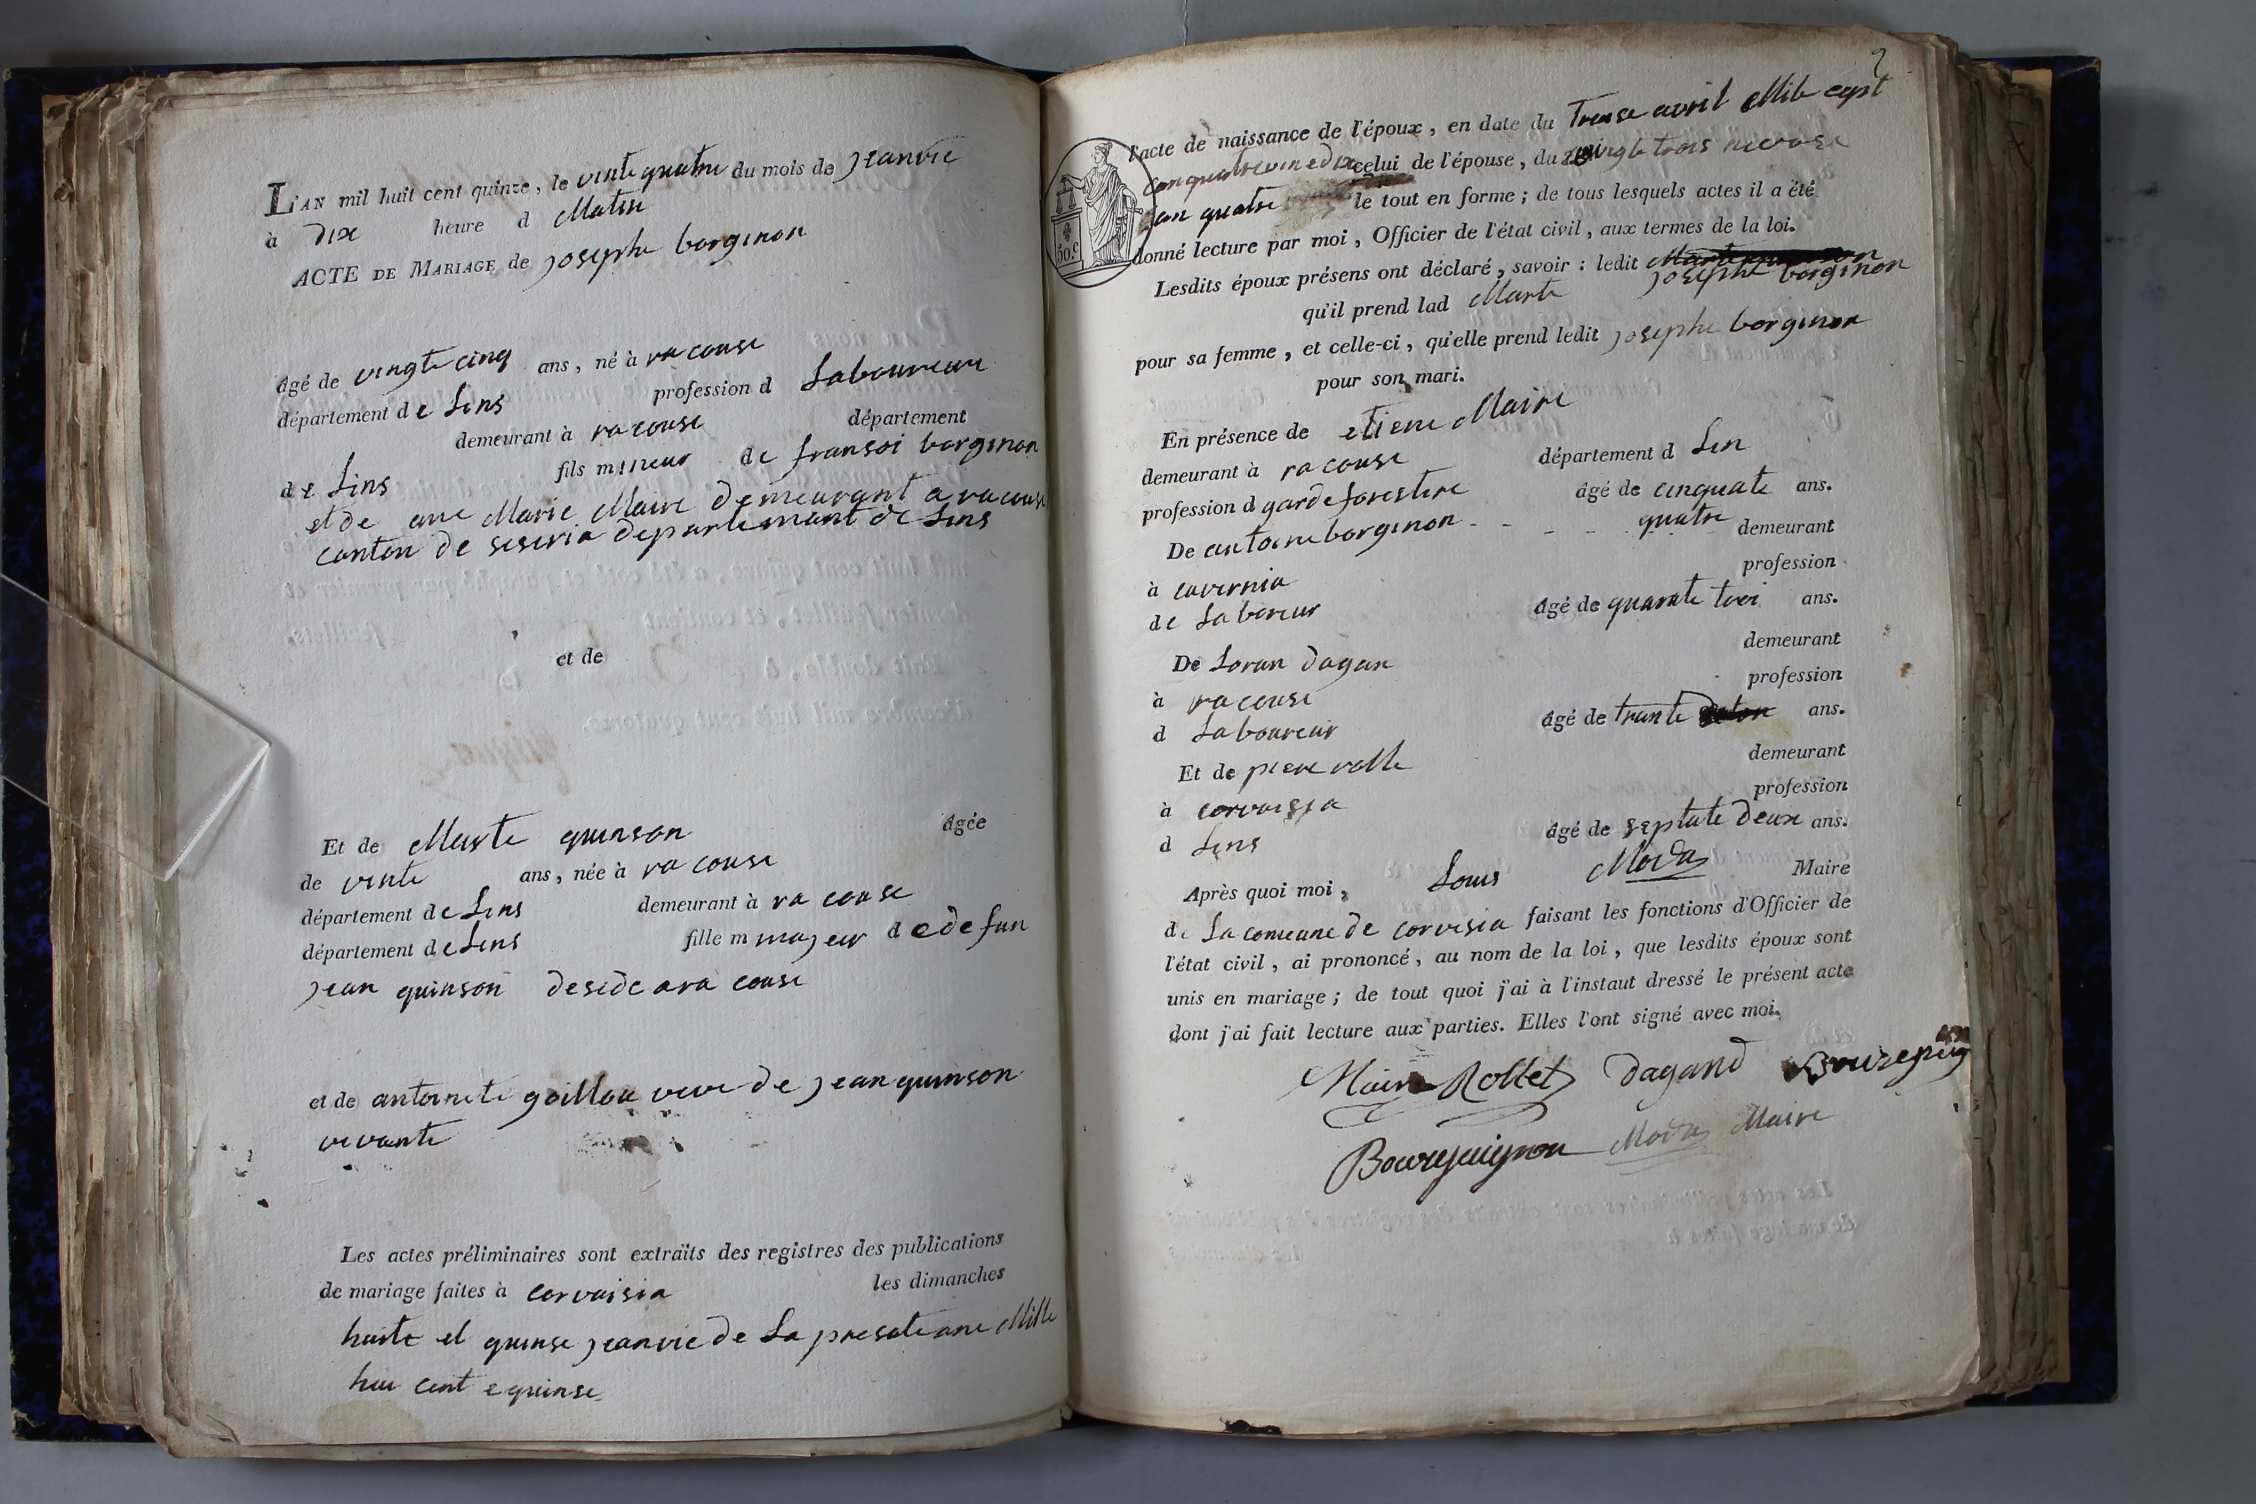 L'AN mil huit cent quinze, le vinte quatre du mois de jeanvie
à dix heure d Matin
ACTE DE MARIAGE de josephe borginon
âgé de vingte cinq ans, né à ra couse
département de Lins profession d Laboureure
demeurant à ra couse département
de Lins fils mineur de fransoi borginon
et de ane Marie Maire demeurant a ra couse
canton de seseria departemant de Lins
et de
Et de Marte quinson âgée
de vinte ans, née à ra couse
département de Lins demeurant à ra couse
département de Lins fille m majeur de defun
jean quinson desede a ra couse
et de antoinete goillou veve de jean quinson
vivante
Les actes préliminaires sont extraits des registres des publications
de mariage faites à corvaisia les dimanches
huite et quinse jeanvie de La presate ane Mille
hui cent e quinse
2
l'acte de naissance de l'époux, en date du trense avril Mile cept
can quatrevinedix celui de l'épouse, du vingte trois nivose
an quatre le tout en forme; de tous lesquels actes il a été
50.c
donné lecture par moi, Officier de l'état civil, aux termes de la loi.
Lesdits époux présens ont déclaré, savoir : ledit
josephe borginon
qu'il prend lad Marte
pour sa femme, et celle-ci, qu'elle prend ledit josephe borginon
pour son mari.
En présence de etiene Maire
demeurant à ra couse département d Lin
profession d garde forestire âgé de cinquate ans.
quatre
De antoine borginon demeurant
à cavernia profession
de Laboreur âgé de quarate troi ans.
De Loran dagan demeurant
à ra couse profession
d Laboureur âgé de trante ans.
Et de piere rolle demeurant
à corvaisia profession
d Lins âgé de septate deux ans.
Après quoi moi, Louis Moda Maire
de La comeune de corvesia faisant les fonctions d'Officier de
l'état civil, ai prononcé, au nom de la loi, que lesdits époux sont
unis en mariage; de tout quoi j'ai à l'instaut dressé le présent acte
dont j'ai fait lecture aux parties. Elles l'ont signé avec moi.
Maire Rollet dagand
Bourguignon Moda Maire